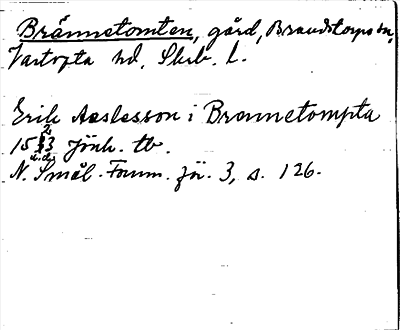 Brännetomten, gård, Brandstorps sn,
Vartofta hd, Skrb. l.
Erik Aslesson i Brannetompta
15 3 Jönk. tb.
N. Smål. Fornm. för. 3, s. 126.